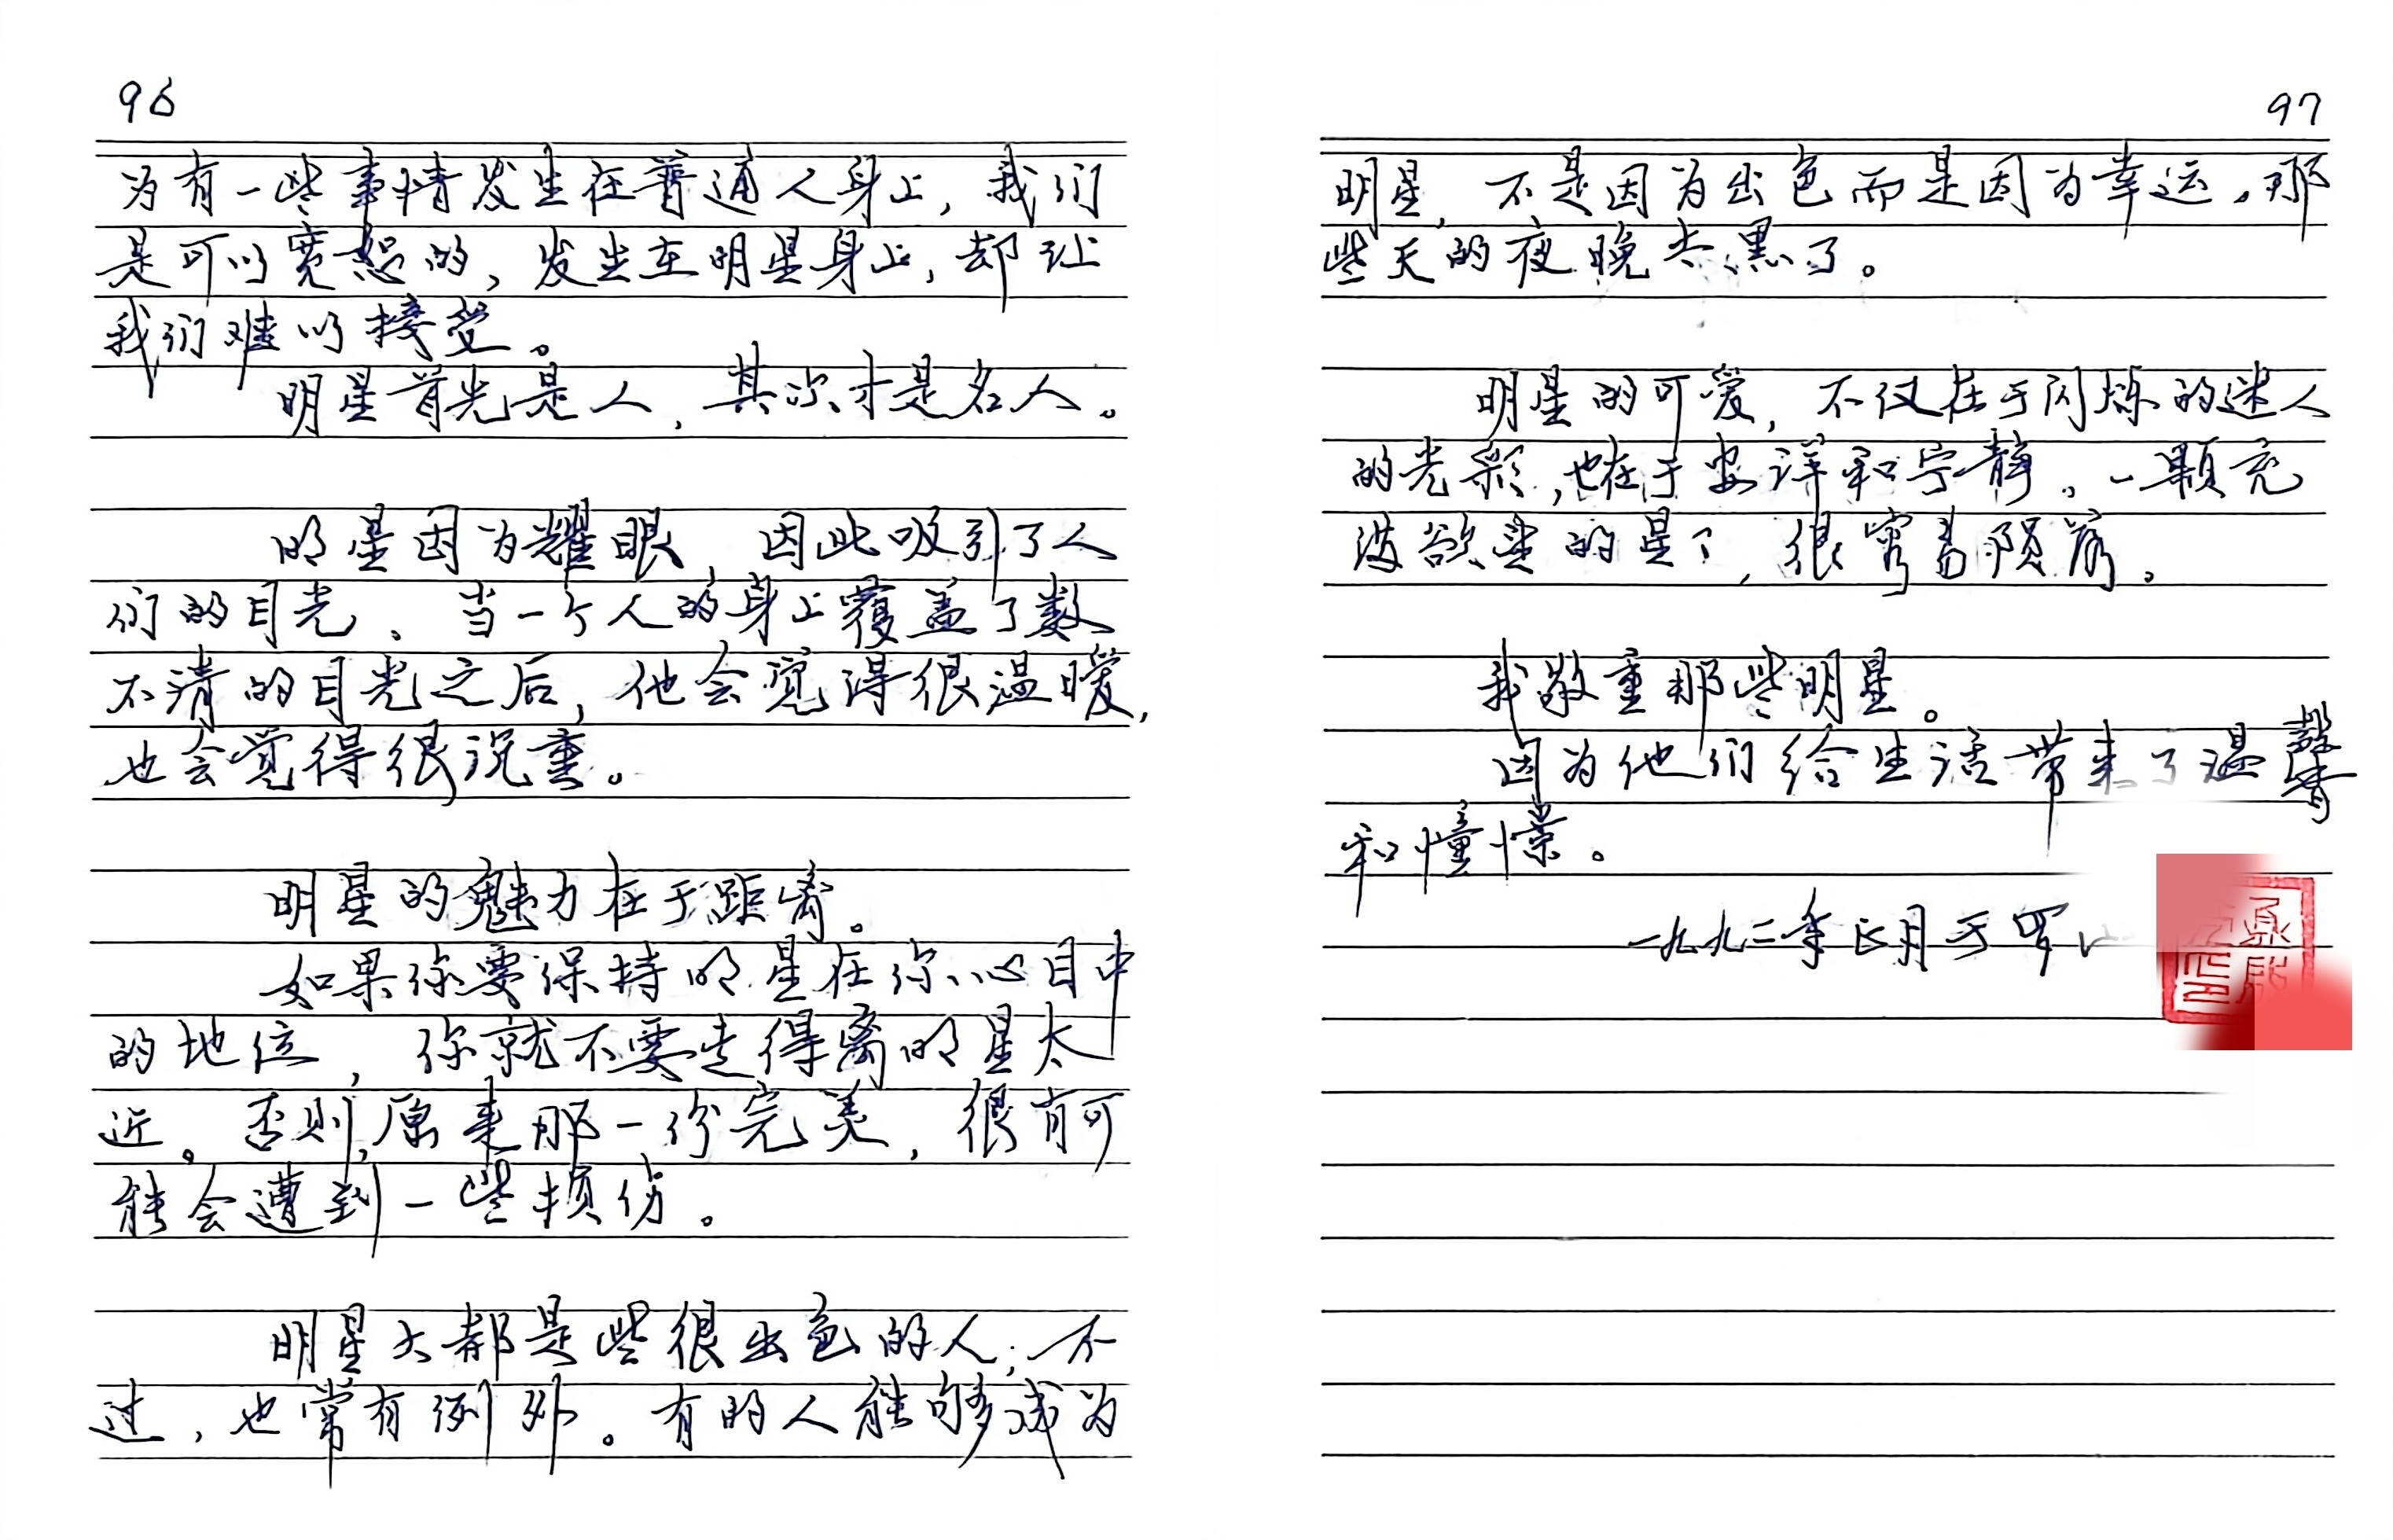 96
为有一些事情发生在普通人身上，我们
是可以宽恕的，发生在明星身上，却让
我们难以接受。
明星首先是人，其次才是名人。
明星因为耀眼，因此吸引了人
们的目光。当一个人的身上覆盖了数
不清的目光之后，他会觉得很温暖，
也会觉得很沉重。
明星的魅力在于距离。
如果你要保持明星在你心目中
的地位，你就不要走得离明星太
近。否则，原来那一份完美，很有可
能会遭到一些损伤。
明星大都是些很出色的人；不
过，也常有例外。有的人能够成为
97
明星，不是因为出色而是因为幸运。那
些天的夜晚太黑了。
明星的可爱，不仅在于闪烁的迷人
的光彩，也在于安详和宁静。一颗充
满欲望的星子，很容易陨落。
我敬重那些明星。
因为他们给生活带来了温馨
和憧憬。
一九九二年正月于罗